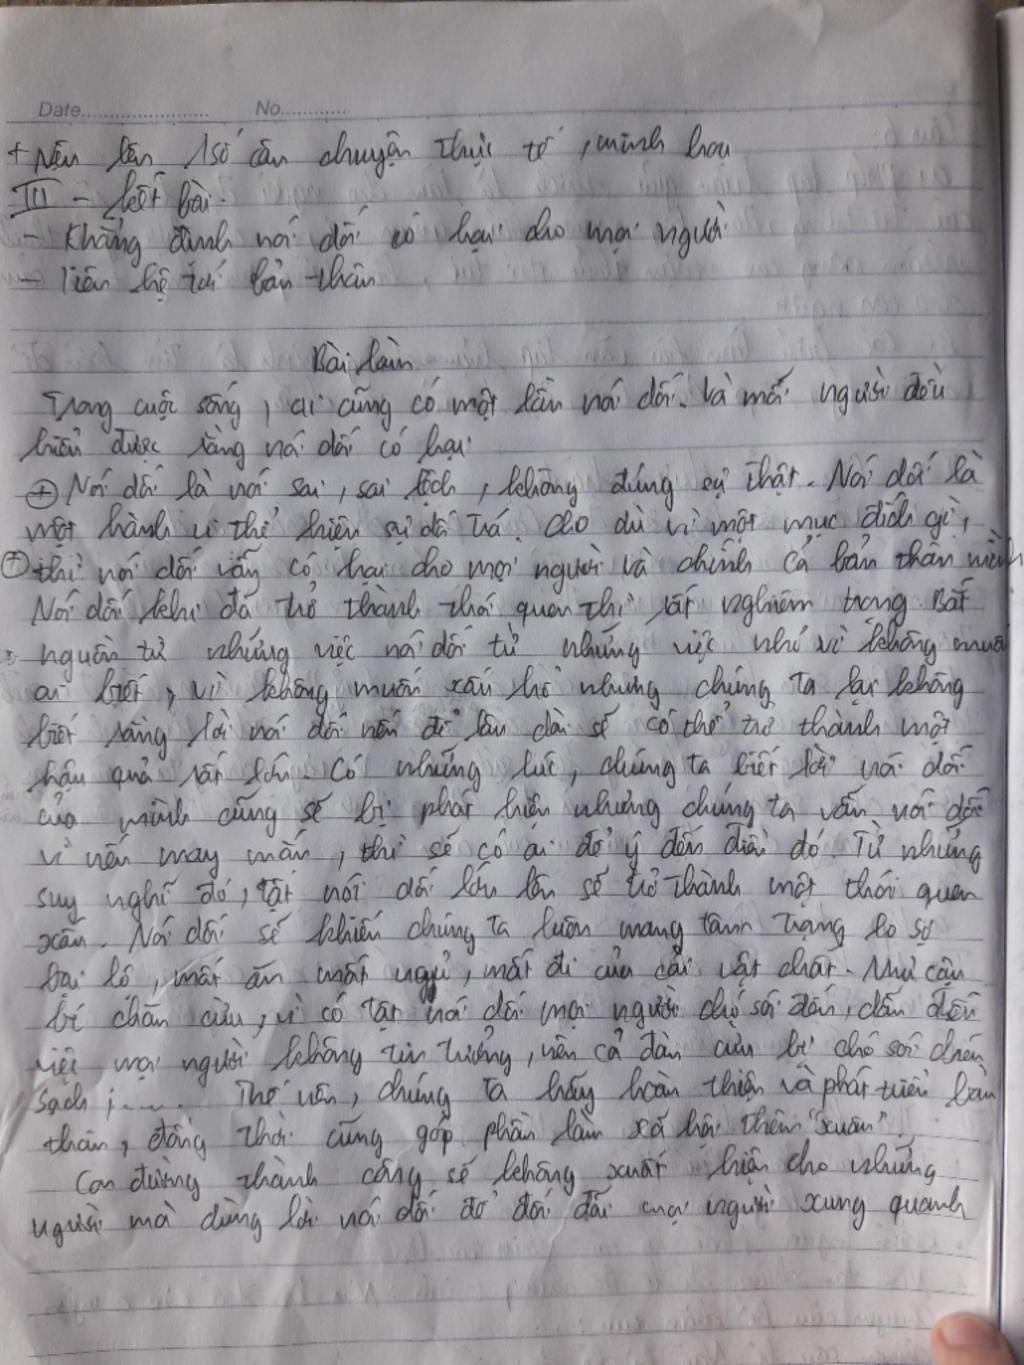 Date........................ No.............
+ Nêu lên 1 số câu chuyện thực tế, minh hoạ
III - kết bài.
- Khẳng định nói dối có hại cho mọi người
- liên hệ tới bản thân
Bài làm
Trong cuộc sống, ai cũng có một lần nói dối. Và mỗi người đều
hiểu được rằng nói dối có hại
+ Nói dối là nói sai, sai lệch, không đúng sự thật. Nói dối là
một hành vi thể hiện sự dối trá. Cho dù vì một mục đích gì,
+ thì nói dối vẫn có hại cho mọi người và chính cả bản thân mình
Nói dối khi đã trở thành thói quen thì rất nghiêm trọng. Bắt
nguồn từ những việc nói dối từ những việc nhỏ vì không muốn
ai biết, vì không muốn xấu hổ nhưng chúng ta lại không
biết rằng lời nói dối nếu để lâu dài sẽ có thể trở thành một
hậu quả rất lớn. Có những lúc, chúng ta biết lời nói dối
của mình cũng sẽ bị phát hiện nhưng chúng ta vẫn nói dối
vì nếu may mắn, thì sẽ có ai để ý đến điều đó. Từ những
suy nghĩ đó, tật nói dối lớn lên sẽ trở thành một thói quen
xấu. Nói dối sẽ khiến chúng ta luôn mang tâm trạng lo sợ
bại lộ, mất ăn mất ngủ, mất đi của cải vật chất. Như cậu
bé chăn cừu, vì có tật nói dối mọi người chó sói đến, dẫn đến
việc mọi người không tin tưởng, nên cả đàn cừu bị chó sói chén
sạch ;..... Thế nên, chúng ta hãy hoàn thiện và phát triển bản
thân, đồng thời cũng góp phần làm xã hội thêm "xuân".
Con đường thành công sẽ không xuất hiện cho những
người mà dùng lời nói dối để đối đãi mọi người xung quanh